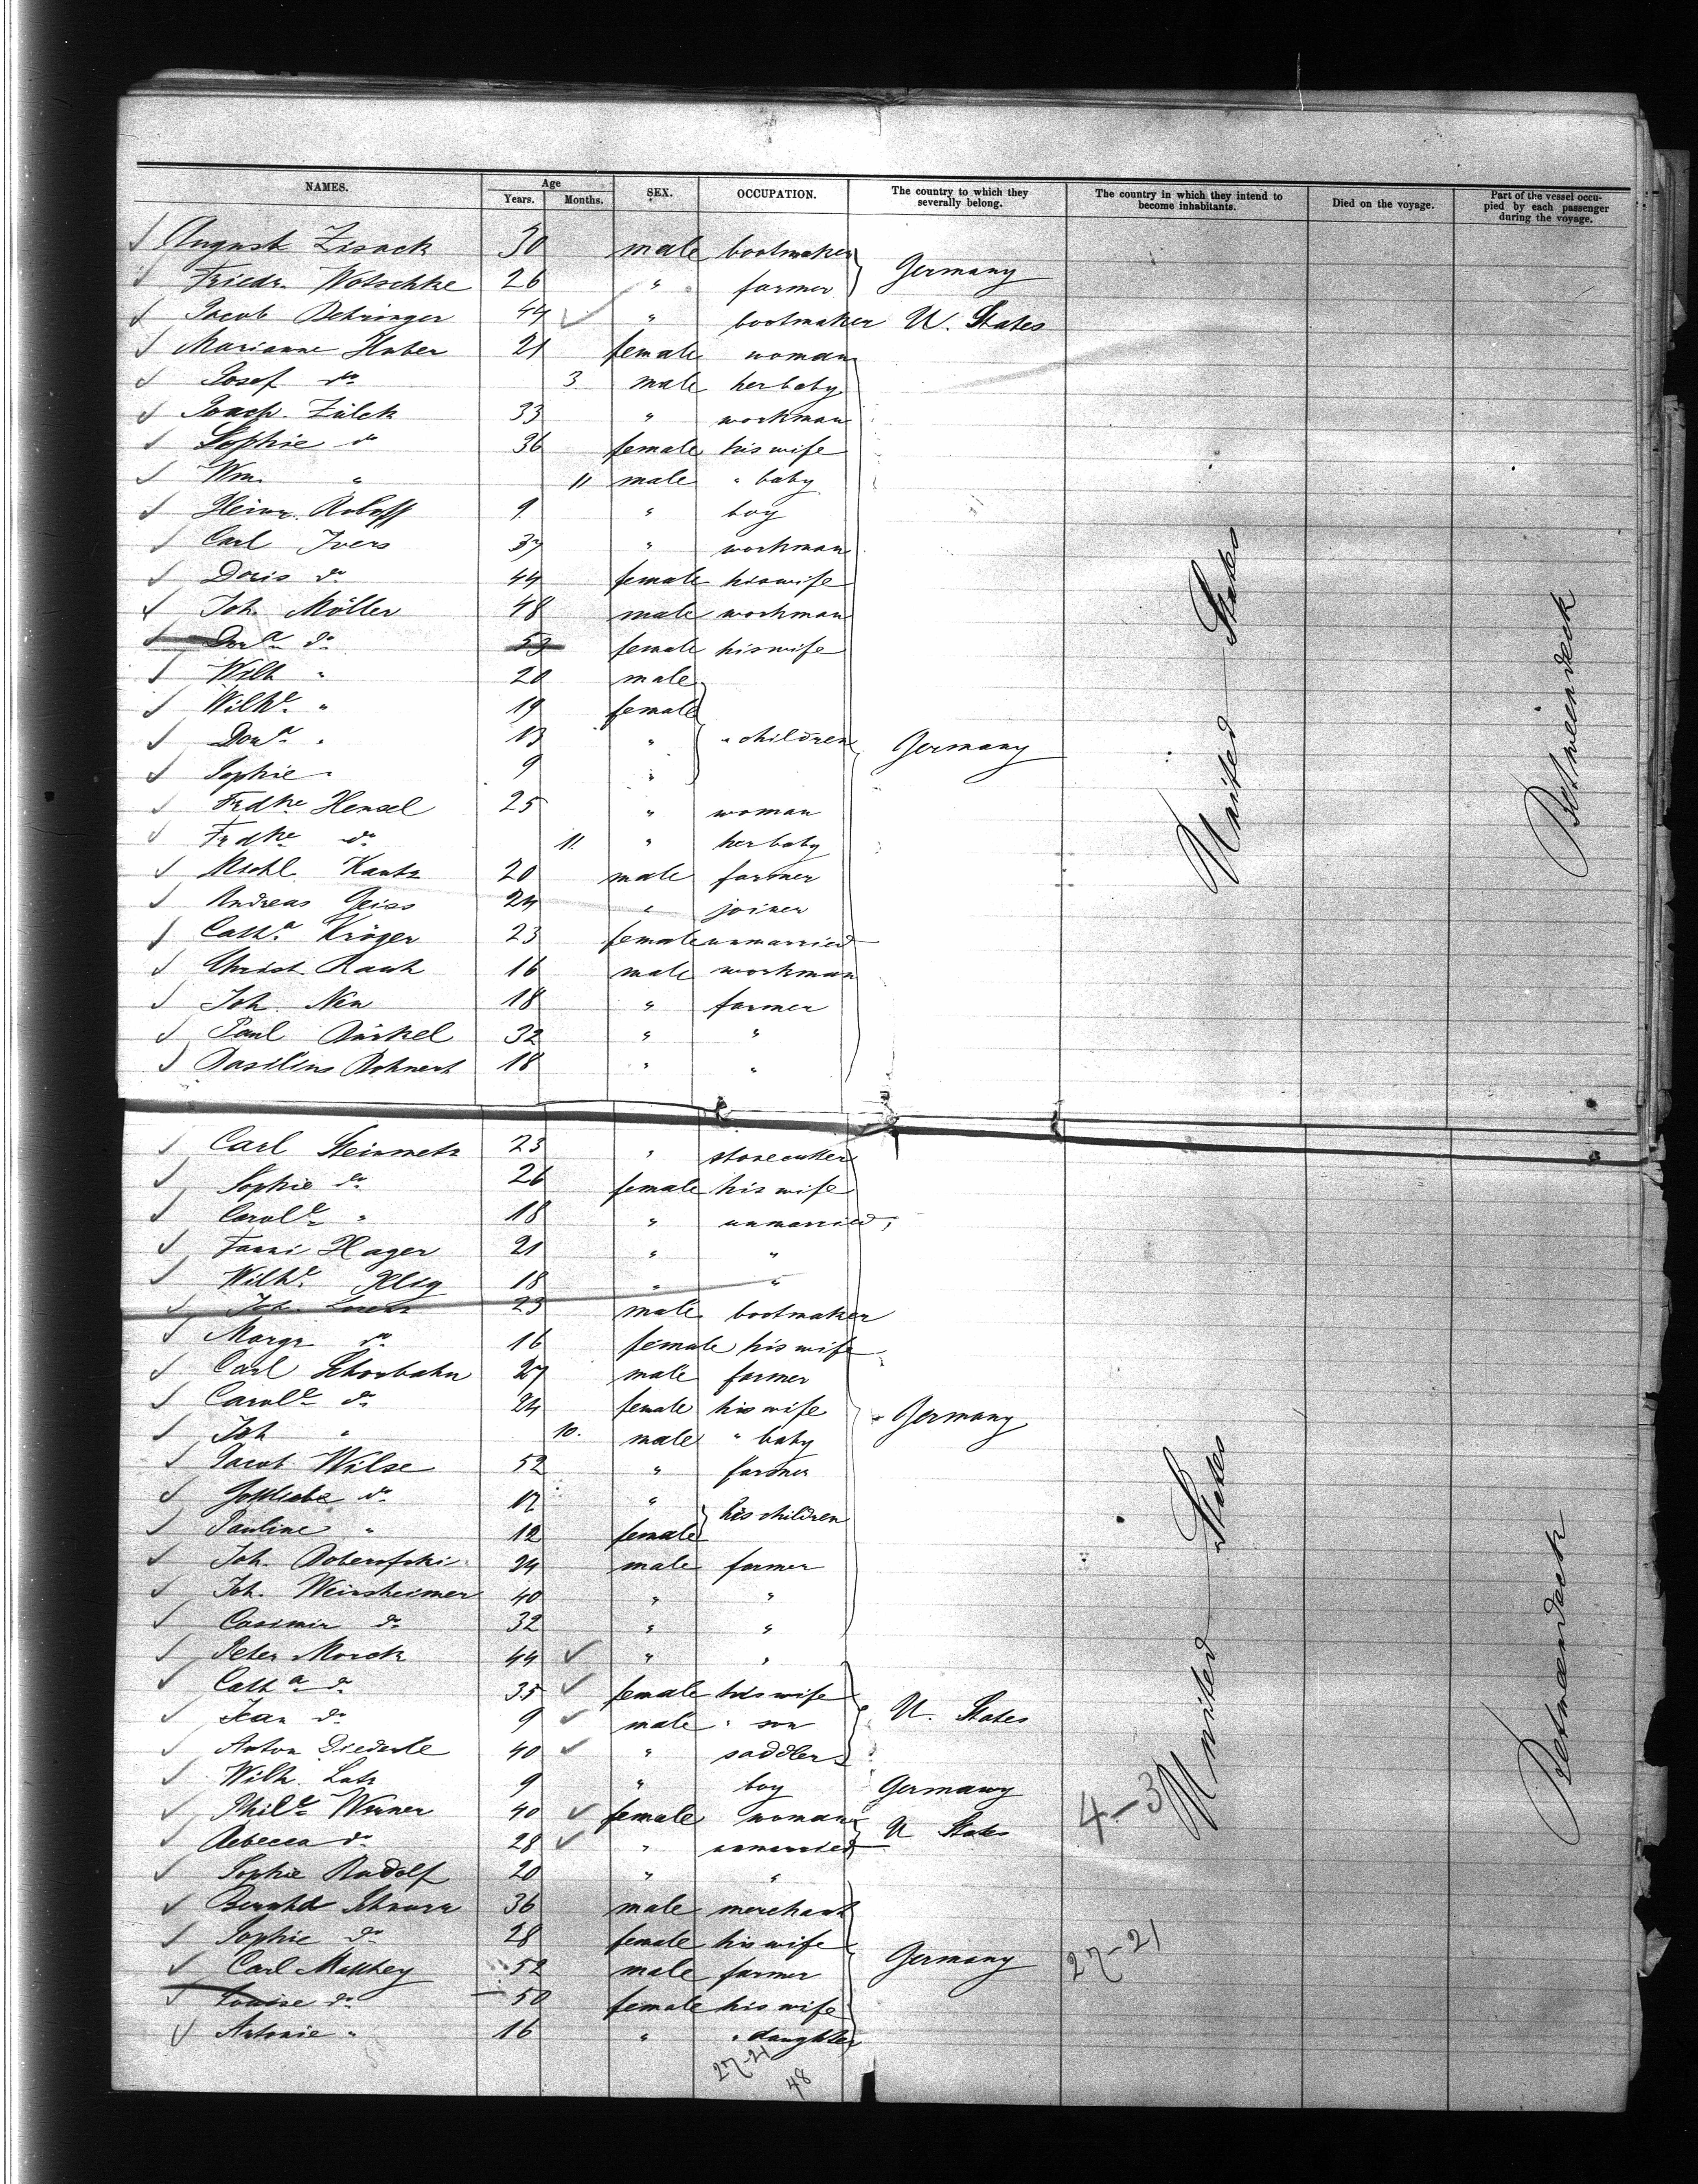 NAMES. Age Years. Months. SEX. OCCUPATION. The country to which they severally belong. The country in which they intend to become inhabitants. Died on the voyage. Part of the vessel occupied by each passenger during the voyage.
August Zisack 30 male bootmaker
Friedr. Wotschke 26 " farmer Germany
Jacob Behringer 44 " bootmaker U. States
Marianne Huber 21 female woman
Josef do 3 male her baby
Joach. Zülck 33 " workman
Sophie do 36 female his wife
Wm. " 11 male " baby
Heinr. Roloff 9 " boy
Carl Ivers 37 " workman
Doris do 44 female his wife
Joh. Möller 48 male workman
Dora do 53 female his wife
Wilh " 20 male
Wilhe " 19 female
Dora " 13 " " children Germany
Sophie " 9 "
Frdke Hensel 25 " woman
Frdke do 11 " her baby
Michl Kautz 20 male farmer
Andreas Geiss 24 " joiner
Catha Kröger 23 female unmarried
Christ Rauh 16 male workman
Joh. Neu 18 " farmer
Paul Bürkel 32 " "
Basilius Bohnert 18 " "
United States
Betweendeck
Carl Steinmetz 23 " stonecutter
Sophie do 26 female his wife
Carole " 18 " unmarried
Fanni Hager 21 " "
Wilhe Illig 18 " "
Joh. 23 male bootmaker
Margr do 16 female his wife
Carl Schorbahn 27 male farmer
Carole do 24 female his wife Germany
Joh " 10 male " baby
Jacob Wilse 52 " farmer
Gottliebe do 17 " his children
Pauline " 12 female
Joh. 24 male farmer
Joh. Weinsheimer 40 " "
Casimir do 32 " "
Peter Morck 44 " "
Catha do 35 female his wife
Jean do 9 male " son U. States
Anton Diederle 40 " saddler
Wilh. Lutz 9 " boy Germany
Phile Werner 40 female woman U States
Rebecca do 28 " unmarried
Sophie Rudolf 20 " "
Bernhd Schnurr 36 male merchant
Sophie do 28 female his wife
Carl Matthey 52 male farmer Germany
Louise do 50 female his wife
Antonie " 16 " " daughter
United States
Betweendeck
4-3
27-21
27-21
48